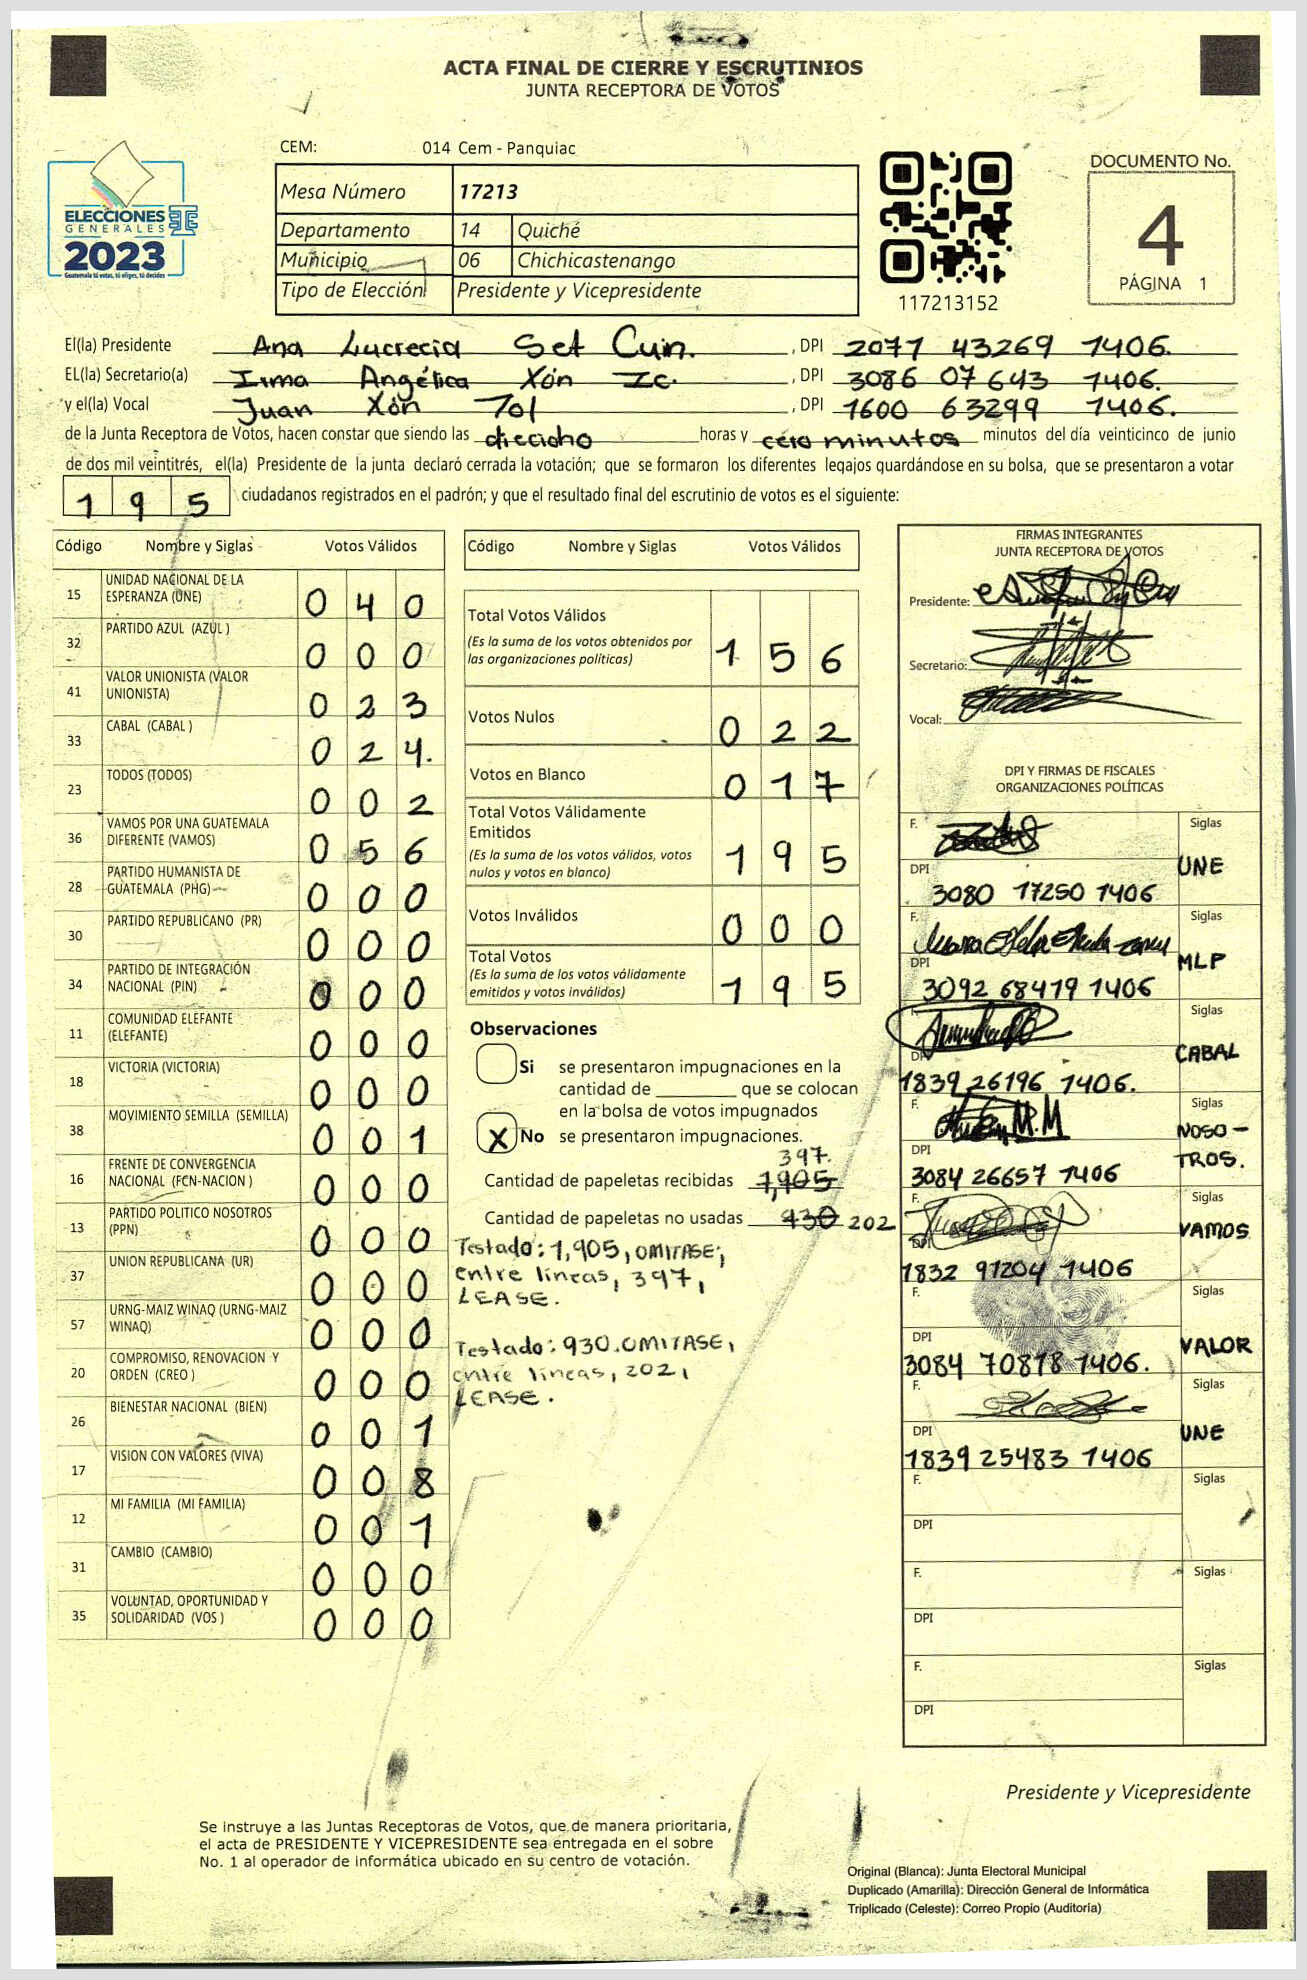 ACTA FINAL DE CIERRE Y ESCRUTINIOS
JUNTA RECEPTORA DE VOTOS
CEM: 014 Cem - Panquiac
ELECCIONES
GENERALES
2023
Guatemala tú votas, tú eliges, tú decides
Mesa Número 17213
Departamento 14 Quiché
Municipio 06 Chichicastenango
Tipo de Elección Presidente y Vicepresidente
117213152
DOCUMENTO No.
4
PÁGINA 1
El(la) Presidente Ana Lucrecia Set Cuin. , DPI 2077 43269 1406.
EL(la) Secretario(a) Irma Angélica Xón Ic. , DPI 3086 07643 1406.
y el(la) Vocal Juan Xón Tol , DPI 1600 63299 1406.
de la Junta Receptora de Votos, hacen constar que siendo las dieciocho horas y cero minutos minutos del día veinticinco de junio
de dos mil veintitrés, el(la) Presidente de la junta declaró cerrada la votación; que se formaron los diferentes legajos guardándose en su bolsa, que se presentaron a votar
195 ciudadanos registrados en el padrón; y que el resultado final del escrutinio de votos es el siguiente:
Código Nombre y Siglas Votos Válidos
15 UNIDAD NACIONAL DE LA ESPERANZA (UNE) 0 4 0
32 PARTIDO AZUL (AZUL ) 0 0 0
41 VALOR UNIONISTA (VALOR UNIONISTA) 0 2 3
33 CABAL (CABAL ) 0 2 4.
23 TODOS (TODOS) 0 0 2
36 VAMOS POR UNA GUATEMALA DIFERENTE (VAMOS) 0 5 6
28 PARTIDO HUMANISTA DE GUATEMALA (PHG) 0 0 0
30 PARTIDO REPUBLICANO (PR) 0 0 0
34 PARTIDO DE INTEGRACIÓN NACIONAL (PIN) 0 0 0
11 COMUNIDAD ELEFANTE (ELEFANTE) 0 0 0
18 VICTORIA (VICTORIA) 0 0 0
38 MOVIMIENTO SEMILLA (SEMILLA) 0 0 1
16 FRENTE DE CONVERGENCIA NACIONAL (FCN-NACION ) 0 0 0
13 PARTIDO POLITICO NOSOTROS (PPN) 0 0 0
37 UNION REPUBLICANA (UR) 0 0 0
57 URNG-MAIZ WINAQ (URNG-MAIZ WINAQ) 0 0 0
20 COMPROMISO, RENOVACION Y ORDEN (CREO ) 0 0 0
26 BIENESTAR NACIONAL (BIEN) 0 0 1
17 VISION CON VALORES (VIVA) 0 0 8
12 MI FAMILIA (MI FAMILIA) 0 0 1
31 CAMBIO (CAMBIO) 0 0 0
35 VOLUNTAD, OPORTUNIDAD Y SOLIDARIDAD (VOS ) 0 0 0
Código Nombre y Siglas Votos Válidos
Total Votos Válidos 1 5 6
(Es la suma de los votos obtenidos por
las organizaciones políticas)
Votos Nulos 0 2 2
Votos en Blanco 0 1 7
Total Votos Válidamente
Emitidos 1 9 5
(Es la suma de los votos válidos, votos
nulos y votos en blanco)
Votos Inválidos 0 0 0
Total Votos 1 9 5
(Es la suma de los votos válidamente
emitidos y votos inválidos)
Observaciones
Si se presentaron impugnaciones en la
cantidad de ________ que se colocan
en la bolsa de votos impugnados
X No se presentaron impugnaciones.
397.
Cantidad de papeletas recibidas 1,905
Cantidad de papeletas no usadas 930 202
Testado: 1,905, OMITASE,
entre lineas, 397,
LEASE.
Testado: 930. OMITASE,
entre lineas, 202,
LEASE.
FIRMAS INTEGRANTES
JUNTA RECEPTORA DE VOTOS
Presidente:
Secretario:
Vocal:
DPI Y FIRMAS DE FISCALES
ORGANIZACIONES POLÍTICAS
F. Siglas
UNE
DPI
3080 17250 1406
F. Siglas
MLP
DPI
3092 68479 1406
F. Siglas
CABAL
DPI
1839 26196 1406.
F. Siglas
NOSO-
TROS.
DPI
3084 26657 1406
F. Siglas
VAMOS
DPI
1832 91204 1406
F. Siglas
VALOR
DPI
3084 70818 1406.
F. Siglas
UNE
DPI
1839 25483 1406
F. Siglas
DPI
F. Siglas
DPI
F. Siglas
DPI
Presidente y Vicepresidente
Se instruye a las Juntas Receptoras de Votos, que de manera prioritaria,
el acta de PRESIDENTE Y VICEPRESIDENTE sea entregada en el sobre
No. 1 al operador de informática ubicado en su centro de votación.
Original (Blanca): Junta Electoral Municipal
Duplicado (Amarilla): Dirección General de Informática
Triplicado (Celeste): Correo Propio (Auditoría)